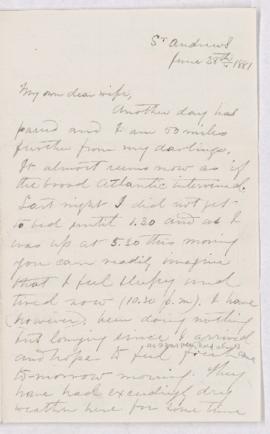 St Andrews
June 28th 1881
My own dear wife,
Another day has
passed and I am 50 miles
further from my darlings.
It almost seems now as if
the broad Atlantic intervened.
Last night I did not get
to bed until 1.30 and as I
was up at 5.30 this morning
you can readily imagine
that I feel sleepy and
tired now (10.30 p.m). I have
(however) been doing nothing
but lounging since I arrived
and hope to feel
to-morrow morning. They
have had exceedingly dry
weather here for some time